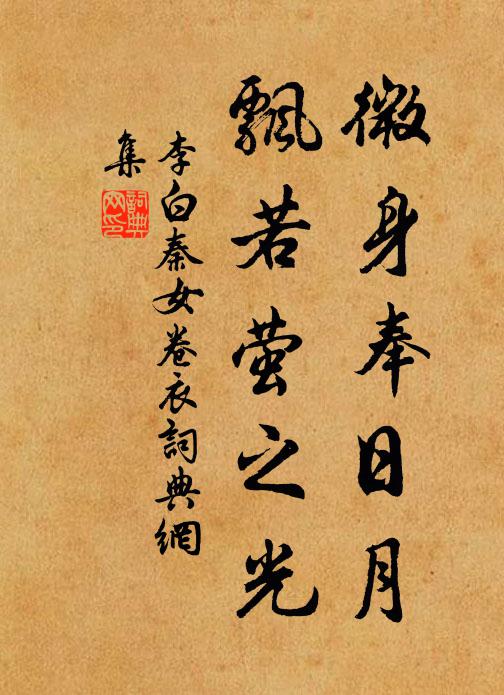 微身奉日月
飘若萤之光
李白秦女卷衣詞典網
集
詞典网印